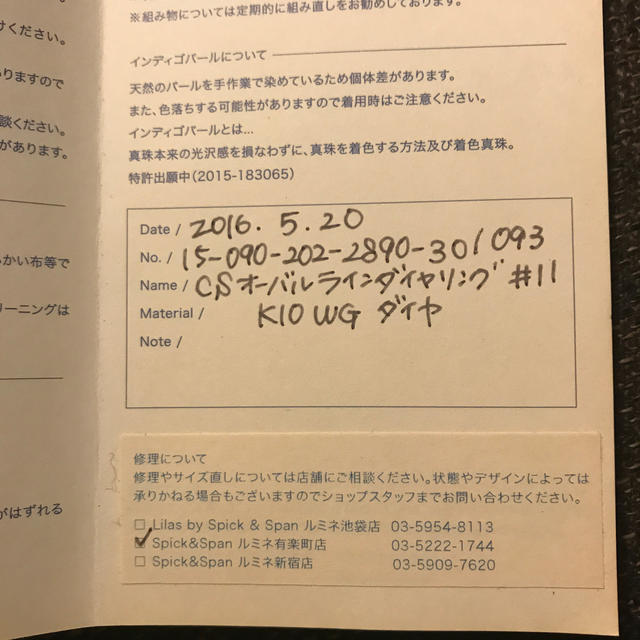 ※組み物については定期的に組み直しをお勧めしております。
ください。
インディゴパールについて
りますので
天然のパールを手作業で染めているため個体差があります。
また、色落ちする可能性がありますので着用時はご注意ください。
談ください。
インディゴパールとは...
があります。
真珠本来の光沢感を損なわずに、真珠を着色する方法及び着色真珠。
特許出願中(2015-183065)
Date / 2016. 5. 20
かい布等で
No. / 15-090-202-2890-301 093
Name / CSオーバルラインダイヤリング #11
リーニングは
Material / K10 WG ダイヤ
Note /
修理について
修理やサイズ直しについては店舗にご相談ください。状態やデザインによっては
承りかねる場合もございますのでショップスタッフまでお問い合わせください。
がはずれる
□ Lilas by Spick & Span ルミネ池袋店 03-5954-8113
☑ Spick&Span ルミネ有楽町店 03-5222-1744
□ Spick&Span ルミネ新宿店 03-5909-7620